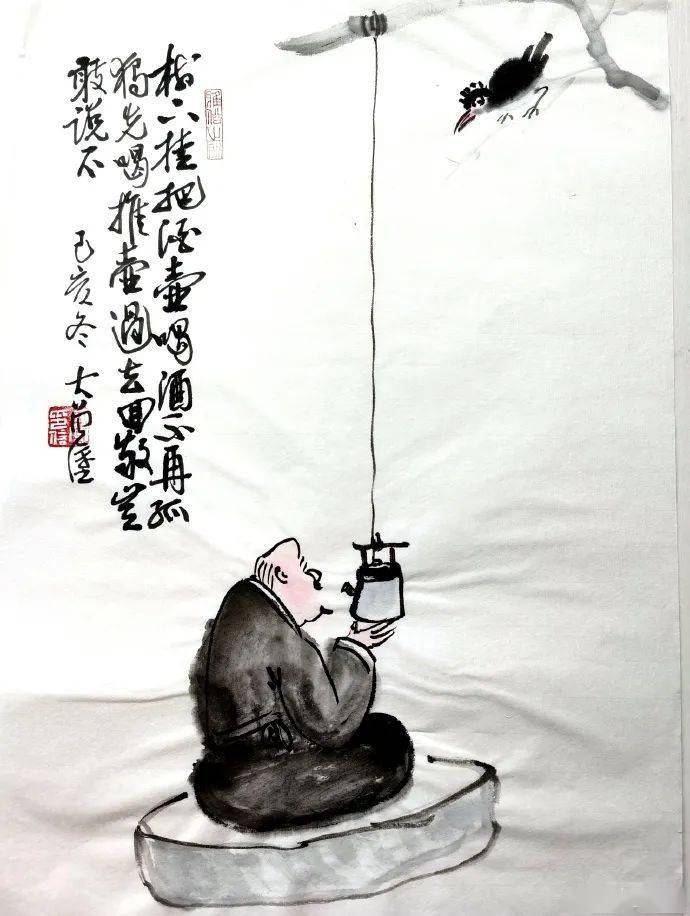 树下挂把酒壺喝酒不再孤
独先喝推壺過去回敬岂
敢说不
己亥冬 大